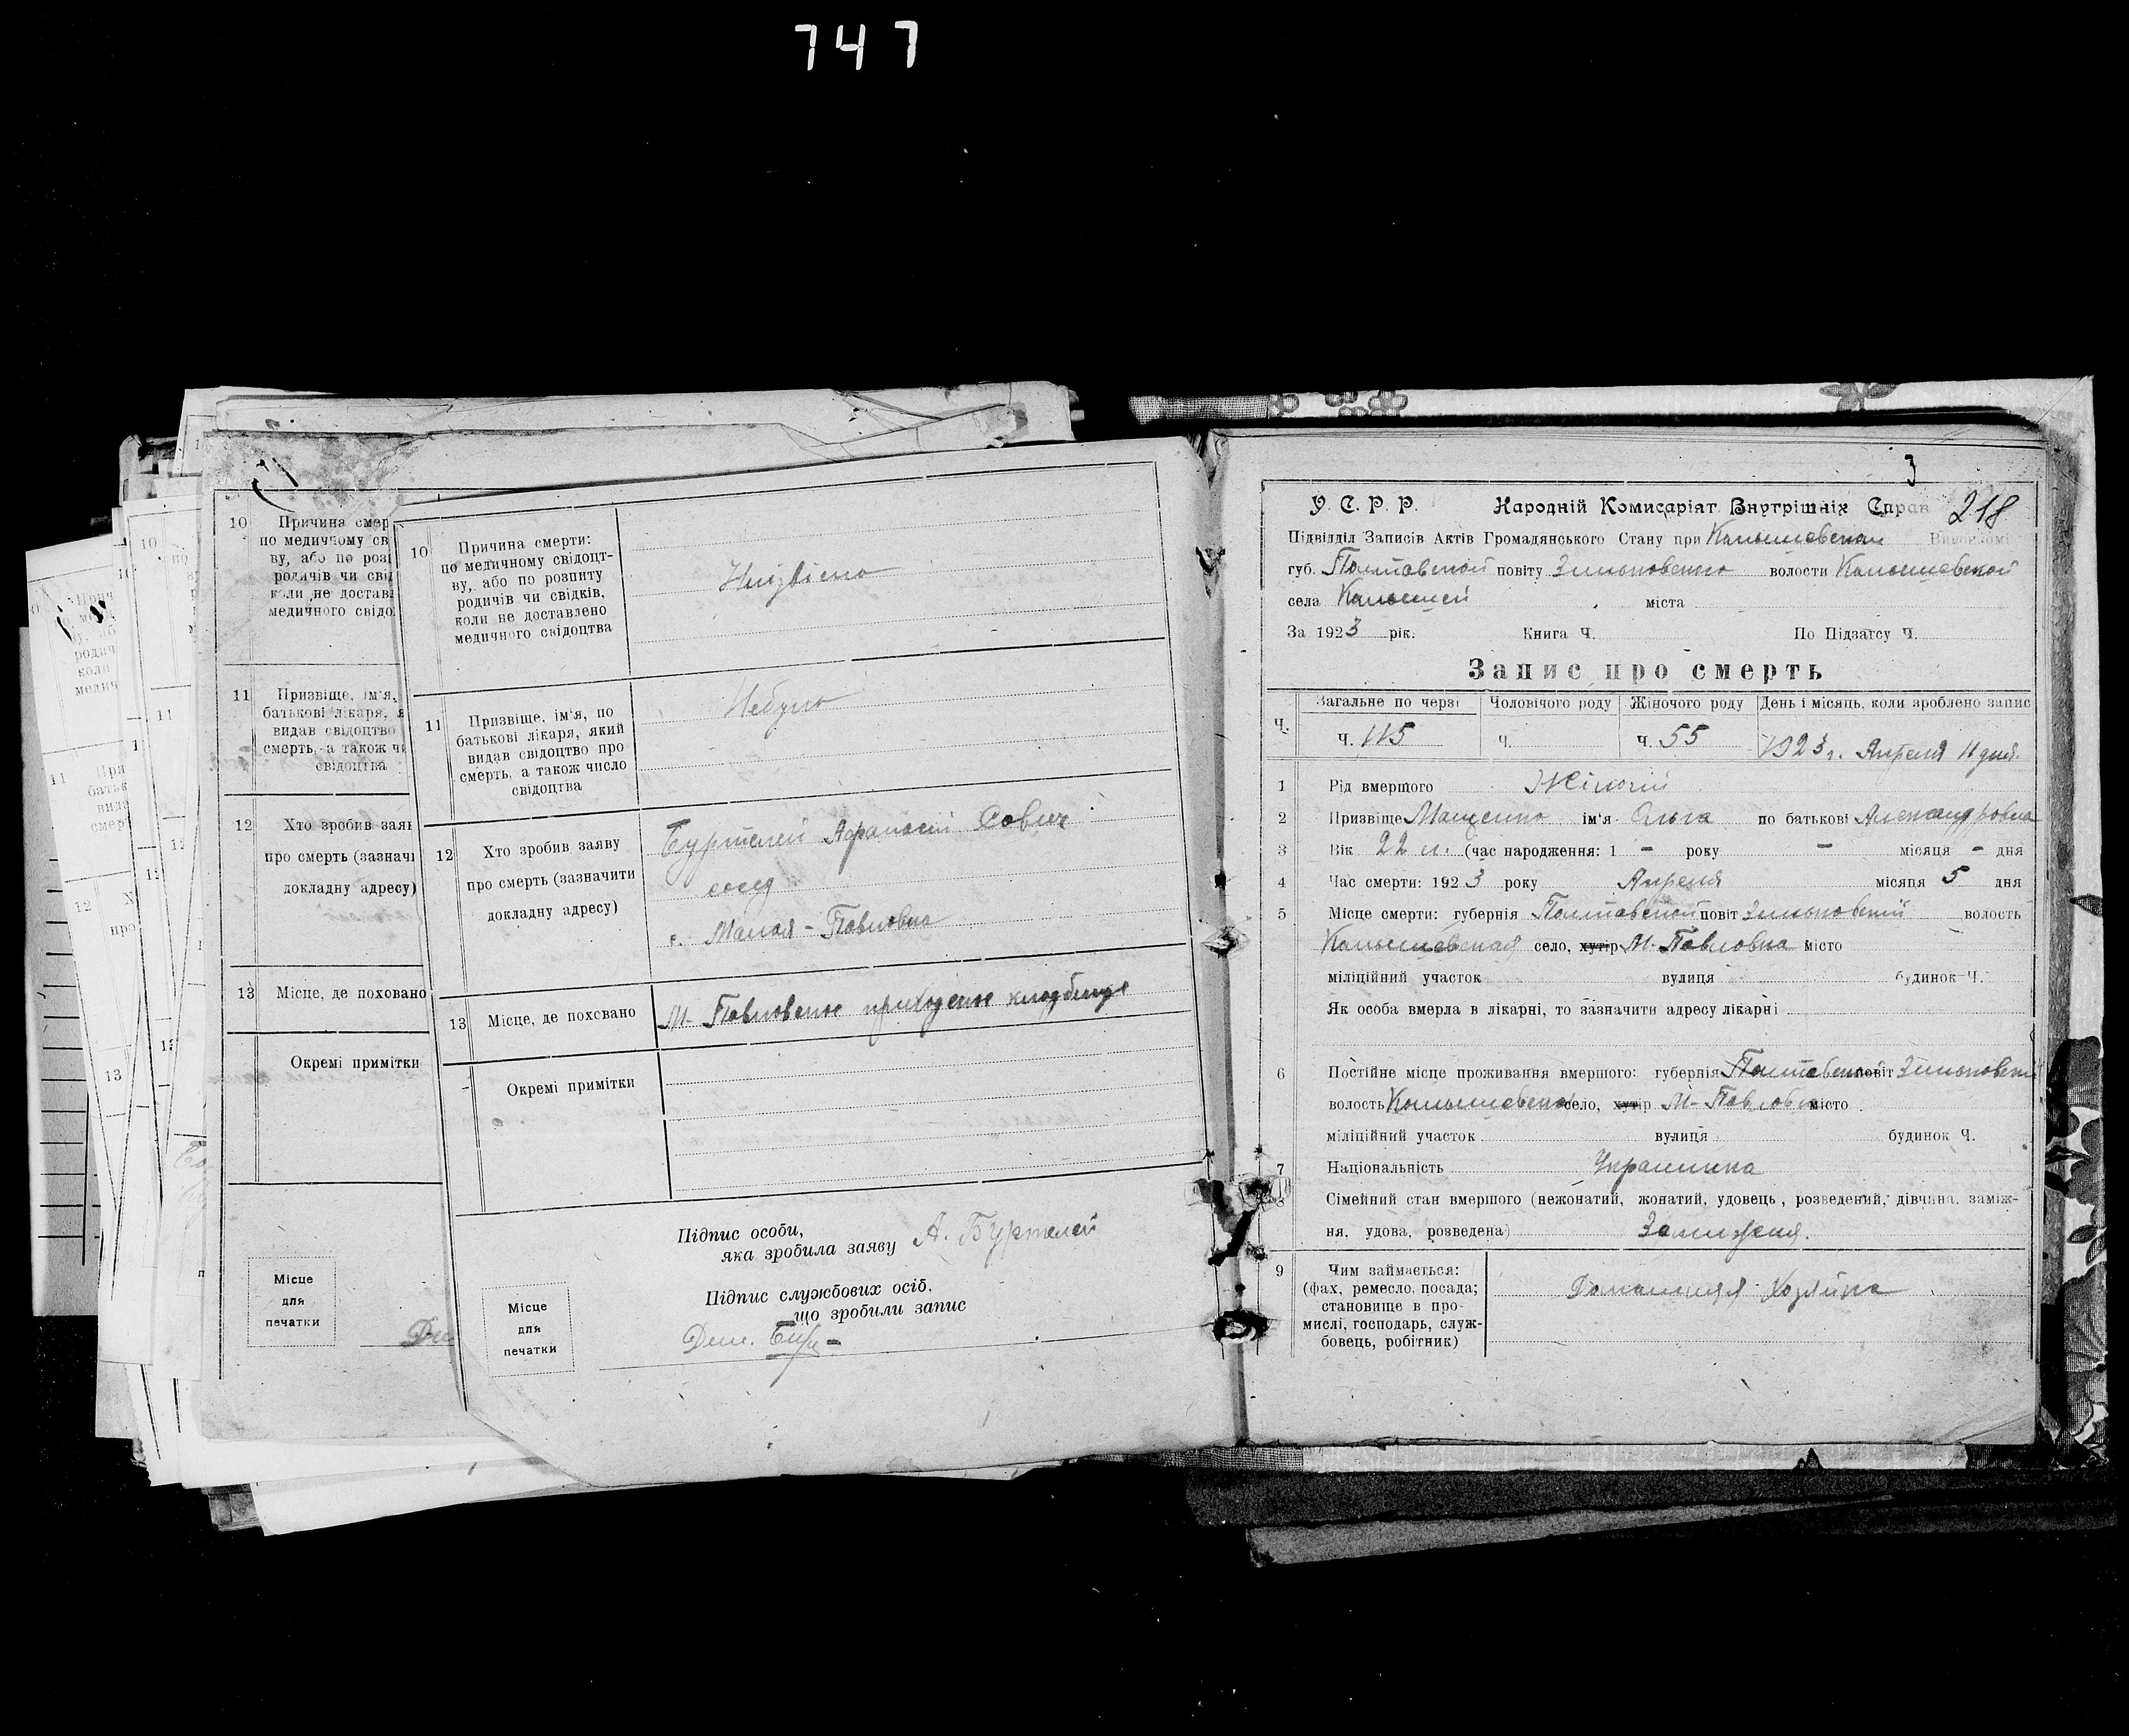 747
10 Причина смерти:
по медичному свідоцт-
ву, або по розпиту
родичів чи свідків,
коли не доставлено
медичного свідоцтва
Нигзвісно
11 Призвіще, ім'я, по
батькові лікаря, який
видав свідоцтво про
смерть, а також число
свідоцтва
Небуло
12 Хто зробив заяву
про смерть (зазначити
докладну адресу)
Буртелей Афанасій Савич
сосед
с. Малая-Павловка
13 Місце, де поховано
М-Павловське приходське кладбище
Окремі примітки
Підпис особи,
яка зробила заяву А. Буртелей
Підпис службових осіб,
що зробили запис
Місце
для
печатки
10 Причина смер
по медичному св
ву, або по роз
родичів чи сві
коли не достав
медичного свідо
11 Призвіще, ім'я,
батькові лікаря, я
видав свідоцтво
смерть, а також чи
свідоцтва
12 Хто зробив заяв
про смерть (зазначи
докладну адресу)
13 Місце, де поховано
Окремі примітки
Місце
для
печатки
3
У. С. Р. Р. Народній Комисаріят Внутрішніх Справ 218
Підвідділ Записів Актів Громадянського Стану при Камышевском Виконкомі
губ. Полтавской повіту Зиньковского волости Камышевской
села Камышей міста
За 1923 рік. Книга Ч. По Підзагсу Ч.
Запис про смерть
Загальне по черзі Чоловічого роду Жіночого роду День і місяць, коли зроблено запис
Ч. ч. 115 ч. ч. 55 1923 г. Апреля 11 дня.
1 Рід вмершого Жіночій
2 Призвіще Мащенко ім'я Ольга по батькові Александровна
3 Вік 22 л. (час народження: 1 - року - місяця - дня
4 Час смерти: 1923 року Апреля місяця 5 дня
5 Місце смерти: губернія Полтавской повіт Зиньковский волость
Камышевская село, хутір М-Павловка місто
міліційний участок вулиця будинок Ч.
Як особа вмерла в лікарні, то зазначити адресу лікарні
6 Постійне місце проживання вмершого: губернія Полтавская повіт Зиньковский
волость Камышевская село, хутір М-Павловка місто
міліційний участок вулиця будинок Ч.
7 Національність Украинка
8 Сімейний стан вмершого (нежонатий, жонатий, удовець, розведений, дівчина, заміж-
ня, удова, розведена) Замижсня.
9 Чим займається:
(фах, ремесло, посада;
становище в про-
мислі, господарь, служ-
бовець, робітник)
Домашняя Хозяйка